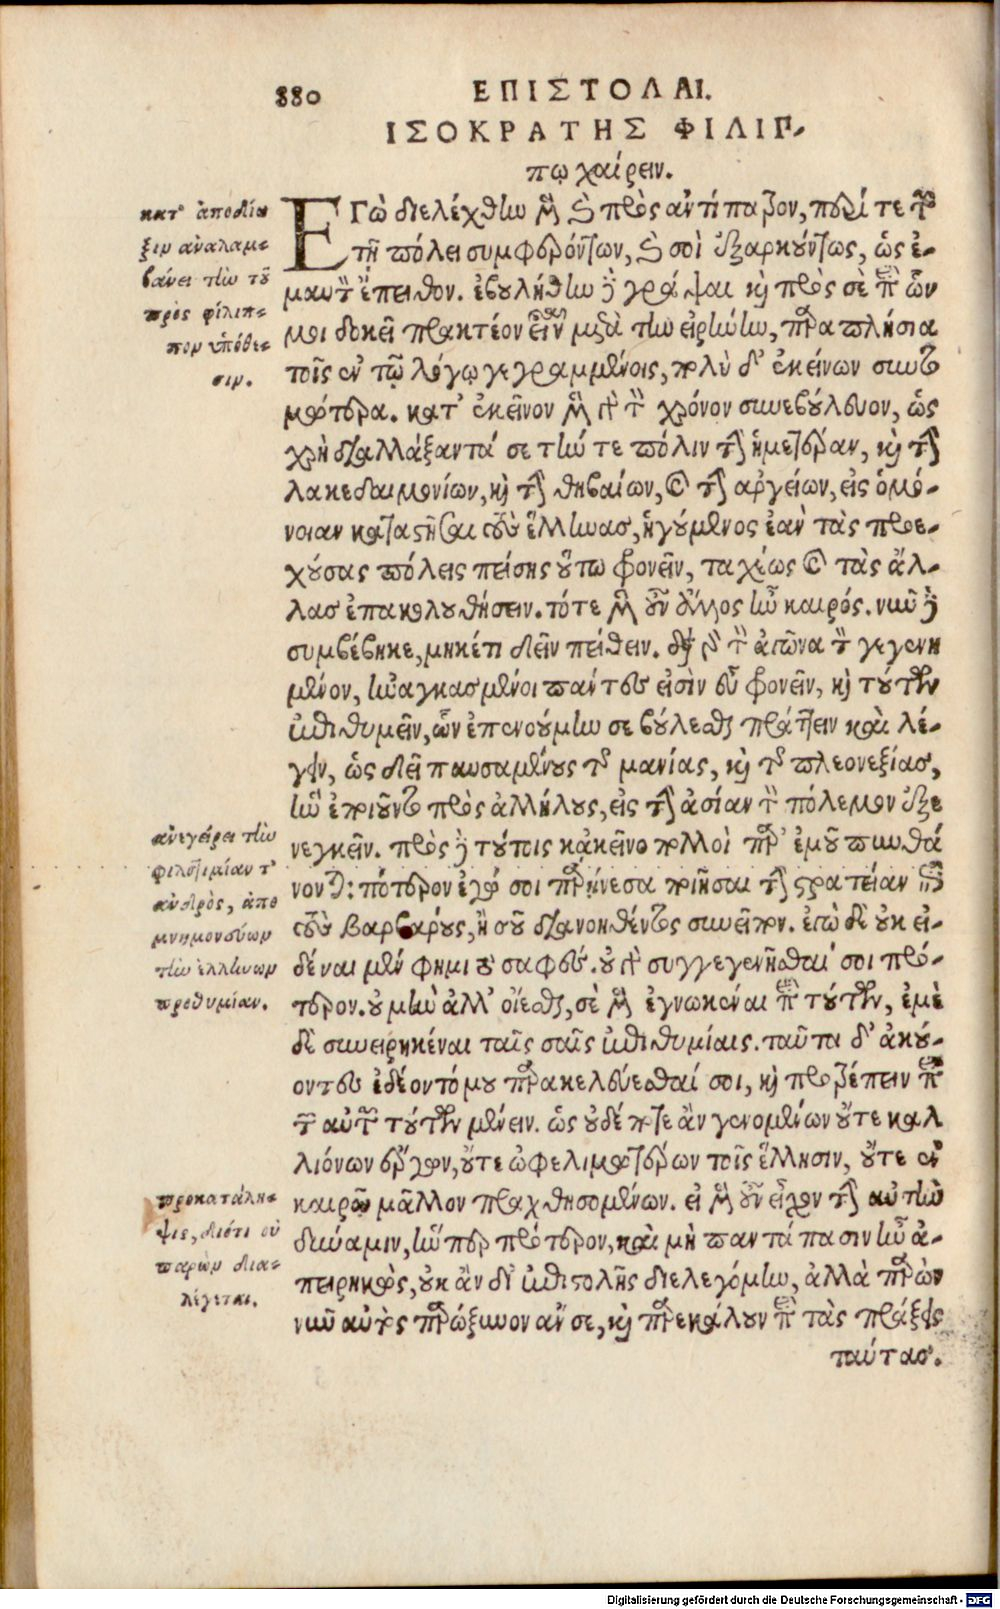 880
ΕΠΙΣΤΟΛΑΙ.
ΙΣΟΚΡΑΤΗΣ ΦΙΛΙΠ-
πῳ χαίρειν.
ΕΓὼ διελέχθην μὲν καὶ πρὸς αντίπατρον, περί τε τῶν
τῇ πόλει συμφερόντων, καὶ σοὶ ἐξαρκούντως, ὡς ἐ-
μαυτὸν ἔπειθον. ἐβουλήθην δὲ γράψαι καὶ πρὸς σὲ περὶ ὧν
μοι δοκεῖ πρακτέον εἶναι μετὰ τὴν εἰρήνην, παραπλήσια
τοῖς ἐν τῷ λόγῳ γεγραμμένοις, πολὺ δ' ἐκείνων συντο
μώτερα. κατ' ἐκεῖνον μὲν γὰρ τὸν χρόνον συνεβούλευον, ὡς
χρὴ διαλλάξαντά σε τήν τε πόλιν τὴν ἡμετέραν, καὶ τὴν
λακεδαιμονίων, καὶ τὴν θηβαίων, καὶ τὴν αργείων, εἰς ὁμό-
νοιαν καταστῆσαι τοὺς ἕλληνας, ἡγούμενος ἐὰν τὰς προε-
χούσας πόλεις πείσης οὕτω φρονεῖν, ταχέως καὶ τὰς ἄλ-
λας ἐπακολουθήσειν. τότε μὲν οὖν ἄλλος ἦν καιρός. νῦν δὲ
συμβέβηκε, μηκέτι δεῖν πείθειν. διὰ γὰρ τὸν ἀγῶνα τὸν γεγενη
μένον, ἠναγκασμένοι πάντες εἰσὶν εὖ φρονεῖν, καὶ τούτων
ἐπιθυμεῖν, ὧν ἐπενούμην σε βούλεσθαι πράττειν καὶ λέ-
γειν, ὡς δεῖ παυσαμένους τῆς μανίας, καὶ τῆς πλεονεξίας,
ἣν ἐποιοῦντο πρὸς ἀλλήλους, εἰς τὴν ἀσίαν τὸν πόλεμον ἐξε
νεγκεῖν. πρὸς δὲ τούτοις κἀκεῖνο πολλοὶ παρ' ἐμοῦ πυνθά
νονται: πότερον ἐγώ σοι παρῄνεσα ποιῆσαι τὴν στρατείαν ἐπὶ
τοὺς βαρβάρους, ἢ σοῦ διανοηθέντος συνεῖπον. ἐγὼ δὲ οὐκ εἰ-
δέναι μέν φημι τὸ σαφές. οὐ γὰρ συγγεγενῆσθαί σοι πρό-
τερον. οὐ μὴν ἀλλ' οἴεσθαι, σὲ μὲν ἐγνωκέναι περὶ τούτων, ἐμὲ
δὲ συνειρηκέναι ταῖς σαῖς ἐπιθυμίαις. ταῦτα δ' ἀκού-
οντες ἐδέοντό μου παρακελεύεσθαί σοι, καὶ προτρέπειν ἐπὶ
τῶν αὐτῶν τούτων μένειν. ὡς οὐδέποτε ἂν γενομένων οὔτε καλ
λιόνων ἔργων, οὔτε ὠφελιμωτέρων τοῖς ἕλλησιν, οὔτε ἐν
καιρῷ μᾶλλον πραχθησομένων. εἰ μὲν οὖν εἶχον τὴν αὐτὴν
δύναμιν, ἥνπερ πρότερον, καὶ μὴ παντάπασιν ἦν ἀ-
πειρηκὼς, οὐκ ἂν δι' ἐπιστολῆς διελεγόμην, ἀλλὰ παρὼν
νῦν αὐτὸς παρώξυνον ἄν σε, καὶ παρεκάλουν ἐπὶ τὰς πράξεις
ταύτας.
κατ' ἀπόδει
ξιν ἀναλαμ-
βάνει τὴν τοῦ
πρὸς φίλιπ-
πον ὑπόθε-
σιν.
ἀνεγείρει τὴν
φιλοτιμίαν τοῦ
ἀνδρὸς, ἀπο
μνημονεύων
τὴν ἑλλήνων
προθυμίαν.
προκατάλη-
ψις, διότι οὐ
παρὼν δια-
λέγεται.
Digitalisierung gefördert durch die Deutsche Forschungsgemeinschaft - DFG